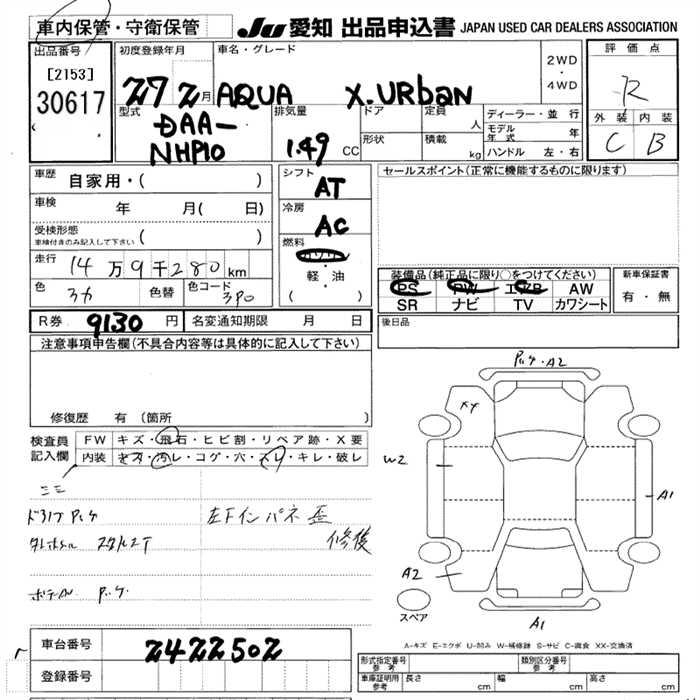 車内保管・守衛保管
JU 愛知 出品申込書 JAPAN USED CAR DEALERS ASSOCIATION
出品番号
[2153]
30617
初度登録年月
27 2月
車名・グレード
AQUA X.URBAN
2WD
・
4WD
評価点
R
外装 内装
C B
型式
DAA-
NHP10
排気量
1.49 CC
ドア
形状
定員 人
積載 kg
ディーラー・並行
モデル年式 年
ハンドル 左・右
車歴 自家用・( )
車検 年 月( 日)
受検形態
車検付きのみ記入して下さい ( )
走行 14万9千280km
色 色替 色コード 3P0
シフト
AT
冷房
AC
燃料
軽・油
( )
セールスポイント(正常に機能するものに限ります)
装備品(純正品に限り○をつけてください)
PS PW エアB AW
SR ナビ TV カワシート
新車保証書
有・無
R券 9130円 名変通知期限 月 日
後日品
注意事項申告欄(不具合内容等は具体的に記入して下さい)
修復歴 有(箇所 )
検査員
記入欄
FW キズ・飛石・ヒビ割・リペア跡・X要
内装 キズ・汚レ・コゲ・穴・スレ・キレ・破レ
左Fインパネ歪
修復
A2
W2
A1
A2
スペア
A1
A-キズ E-エクボ U-凹み W-補修跡 S-サビ C-腐食 XX-交換済
車台番号 2422502
登録番号
形式指定番号
参考
類別区分番号
参考
車庫証明用
参考
長さ cm 幅 cm 高さ cm